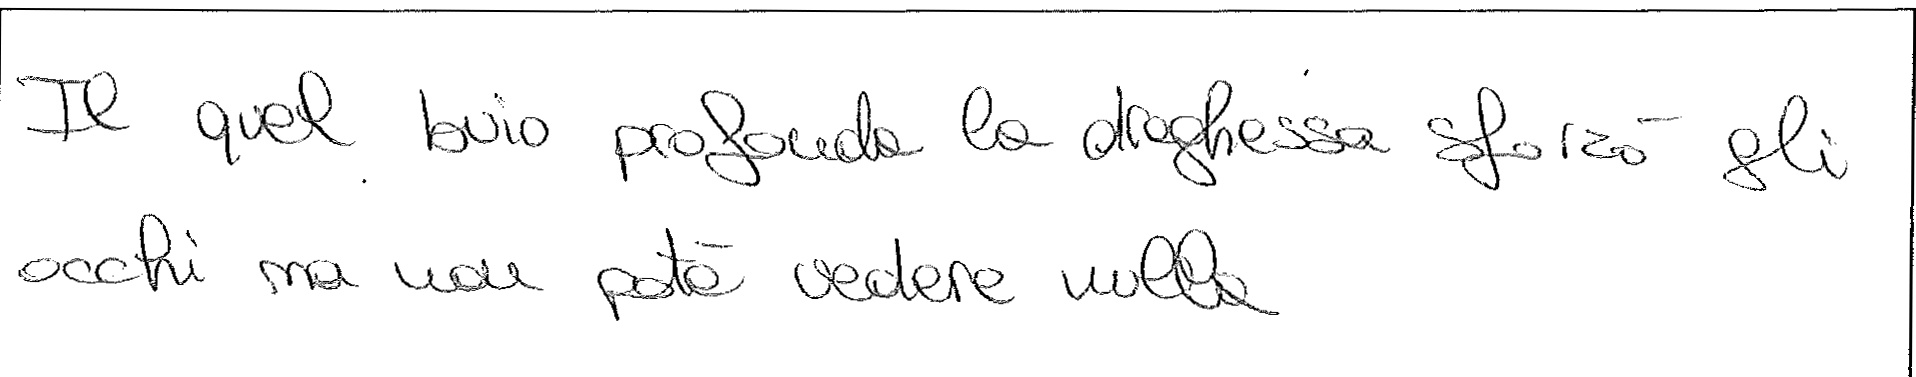 Il quel buio profondo la draghessa sforzò gli
occhi ma non potè vedere nulla